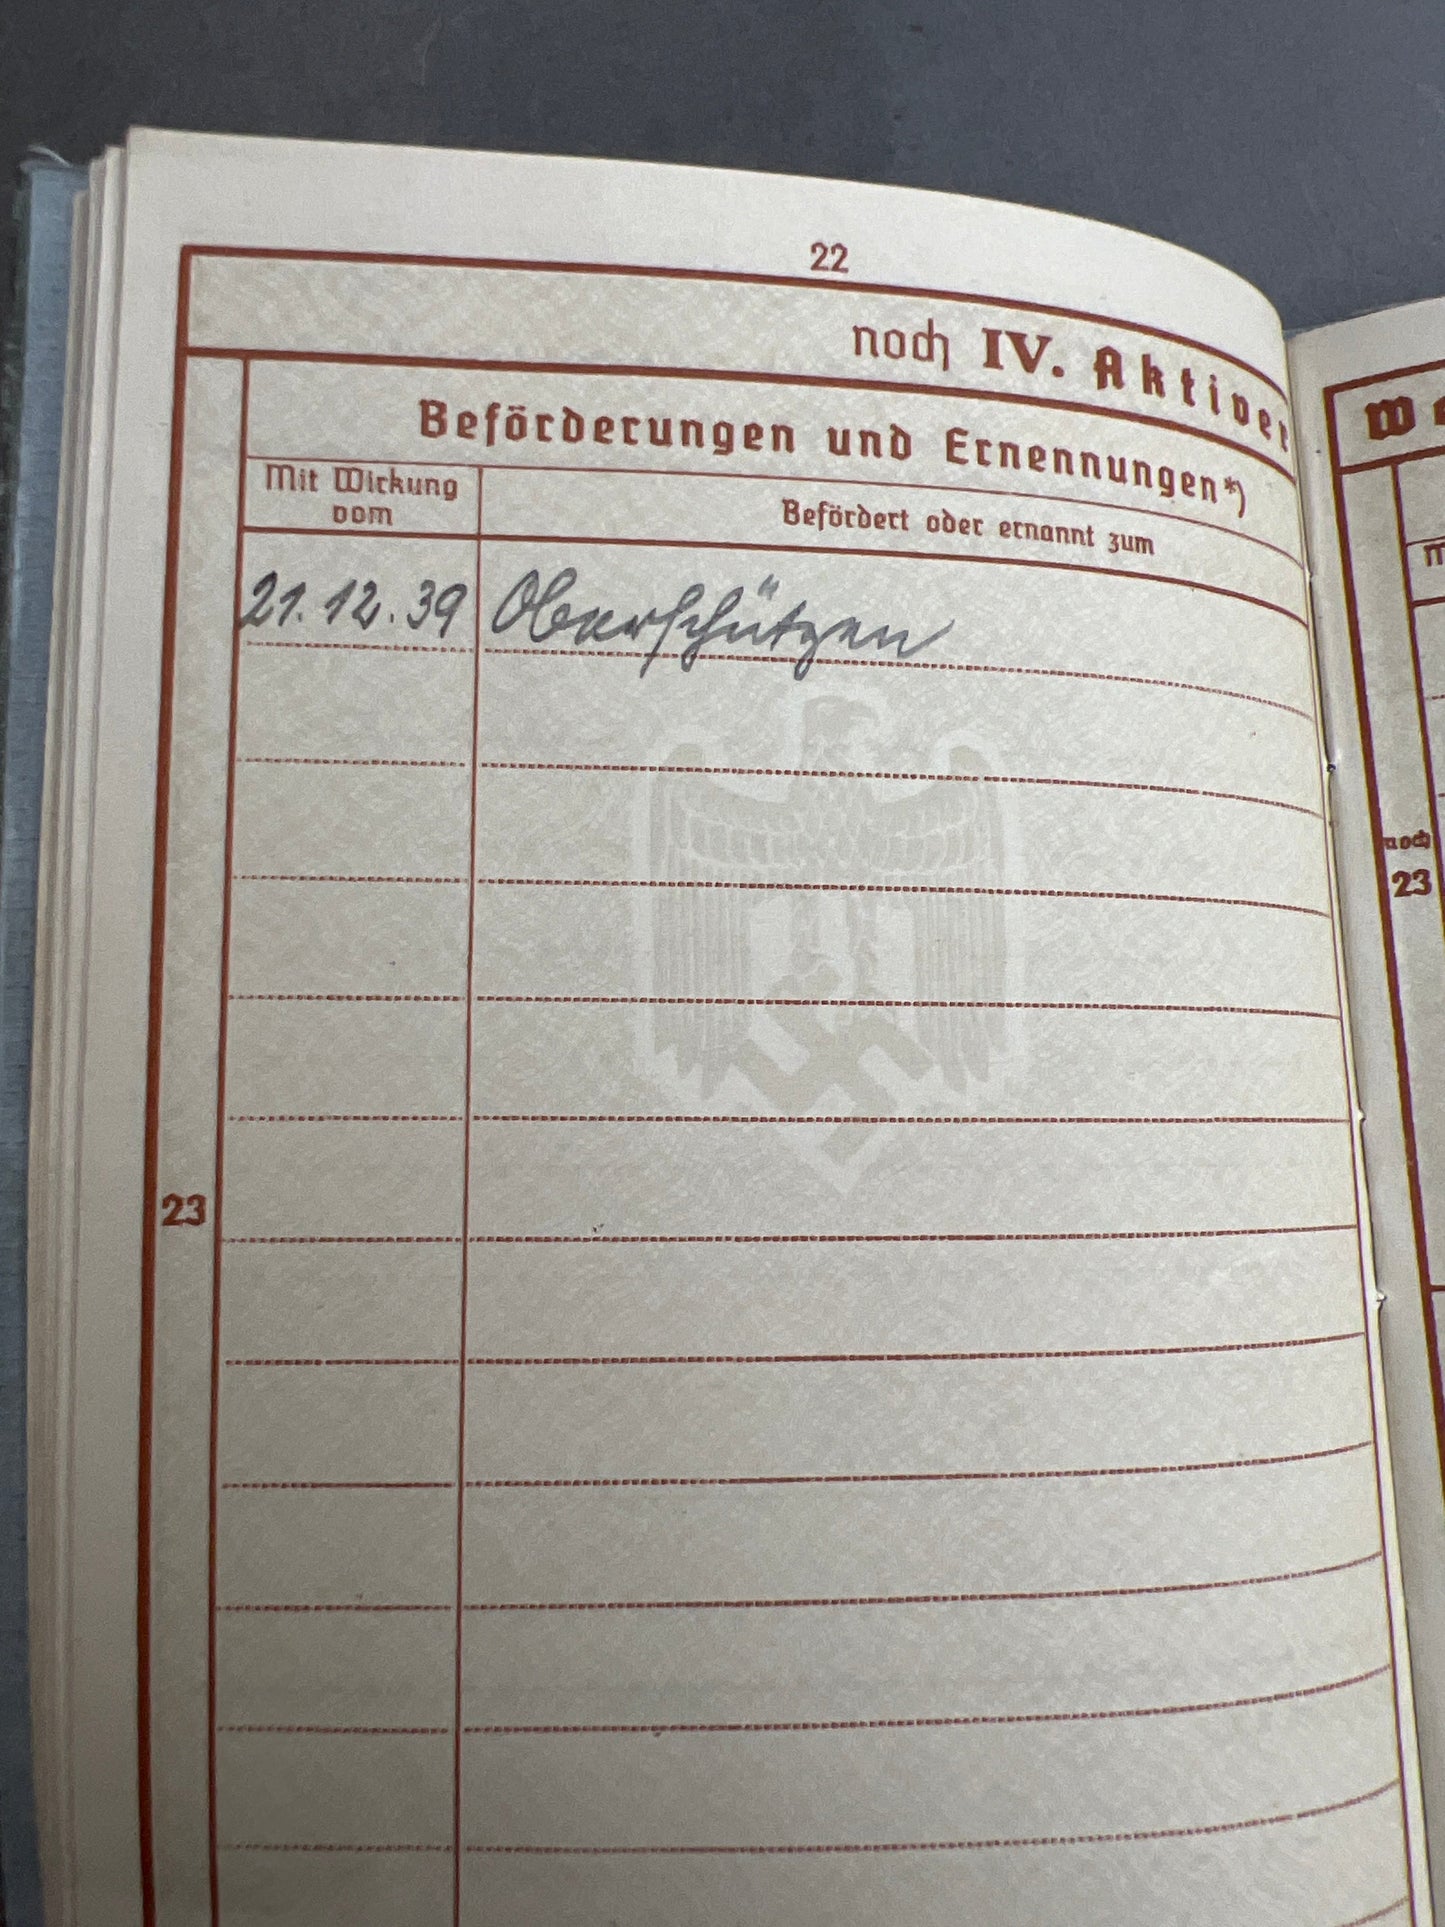 22
noch IV. Aktiver
Beförderungen und Ernennungen*)
Mit Wirkung
vom
Befördert oder ernannt zum
21.12.39 Oberschützen
23
noch
23